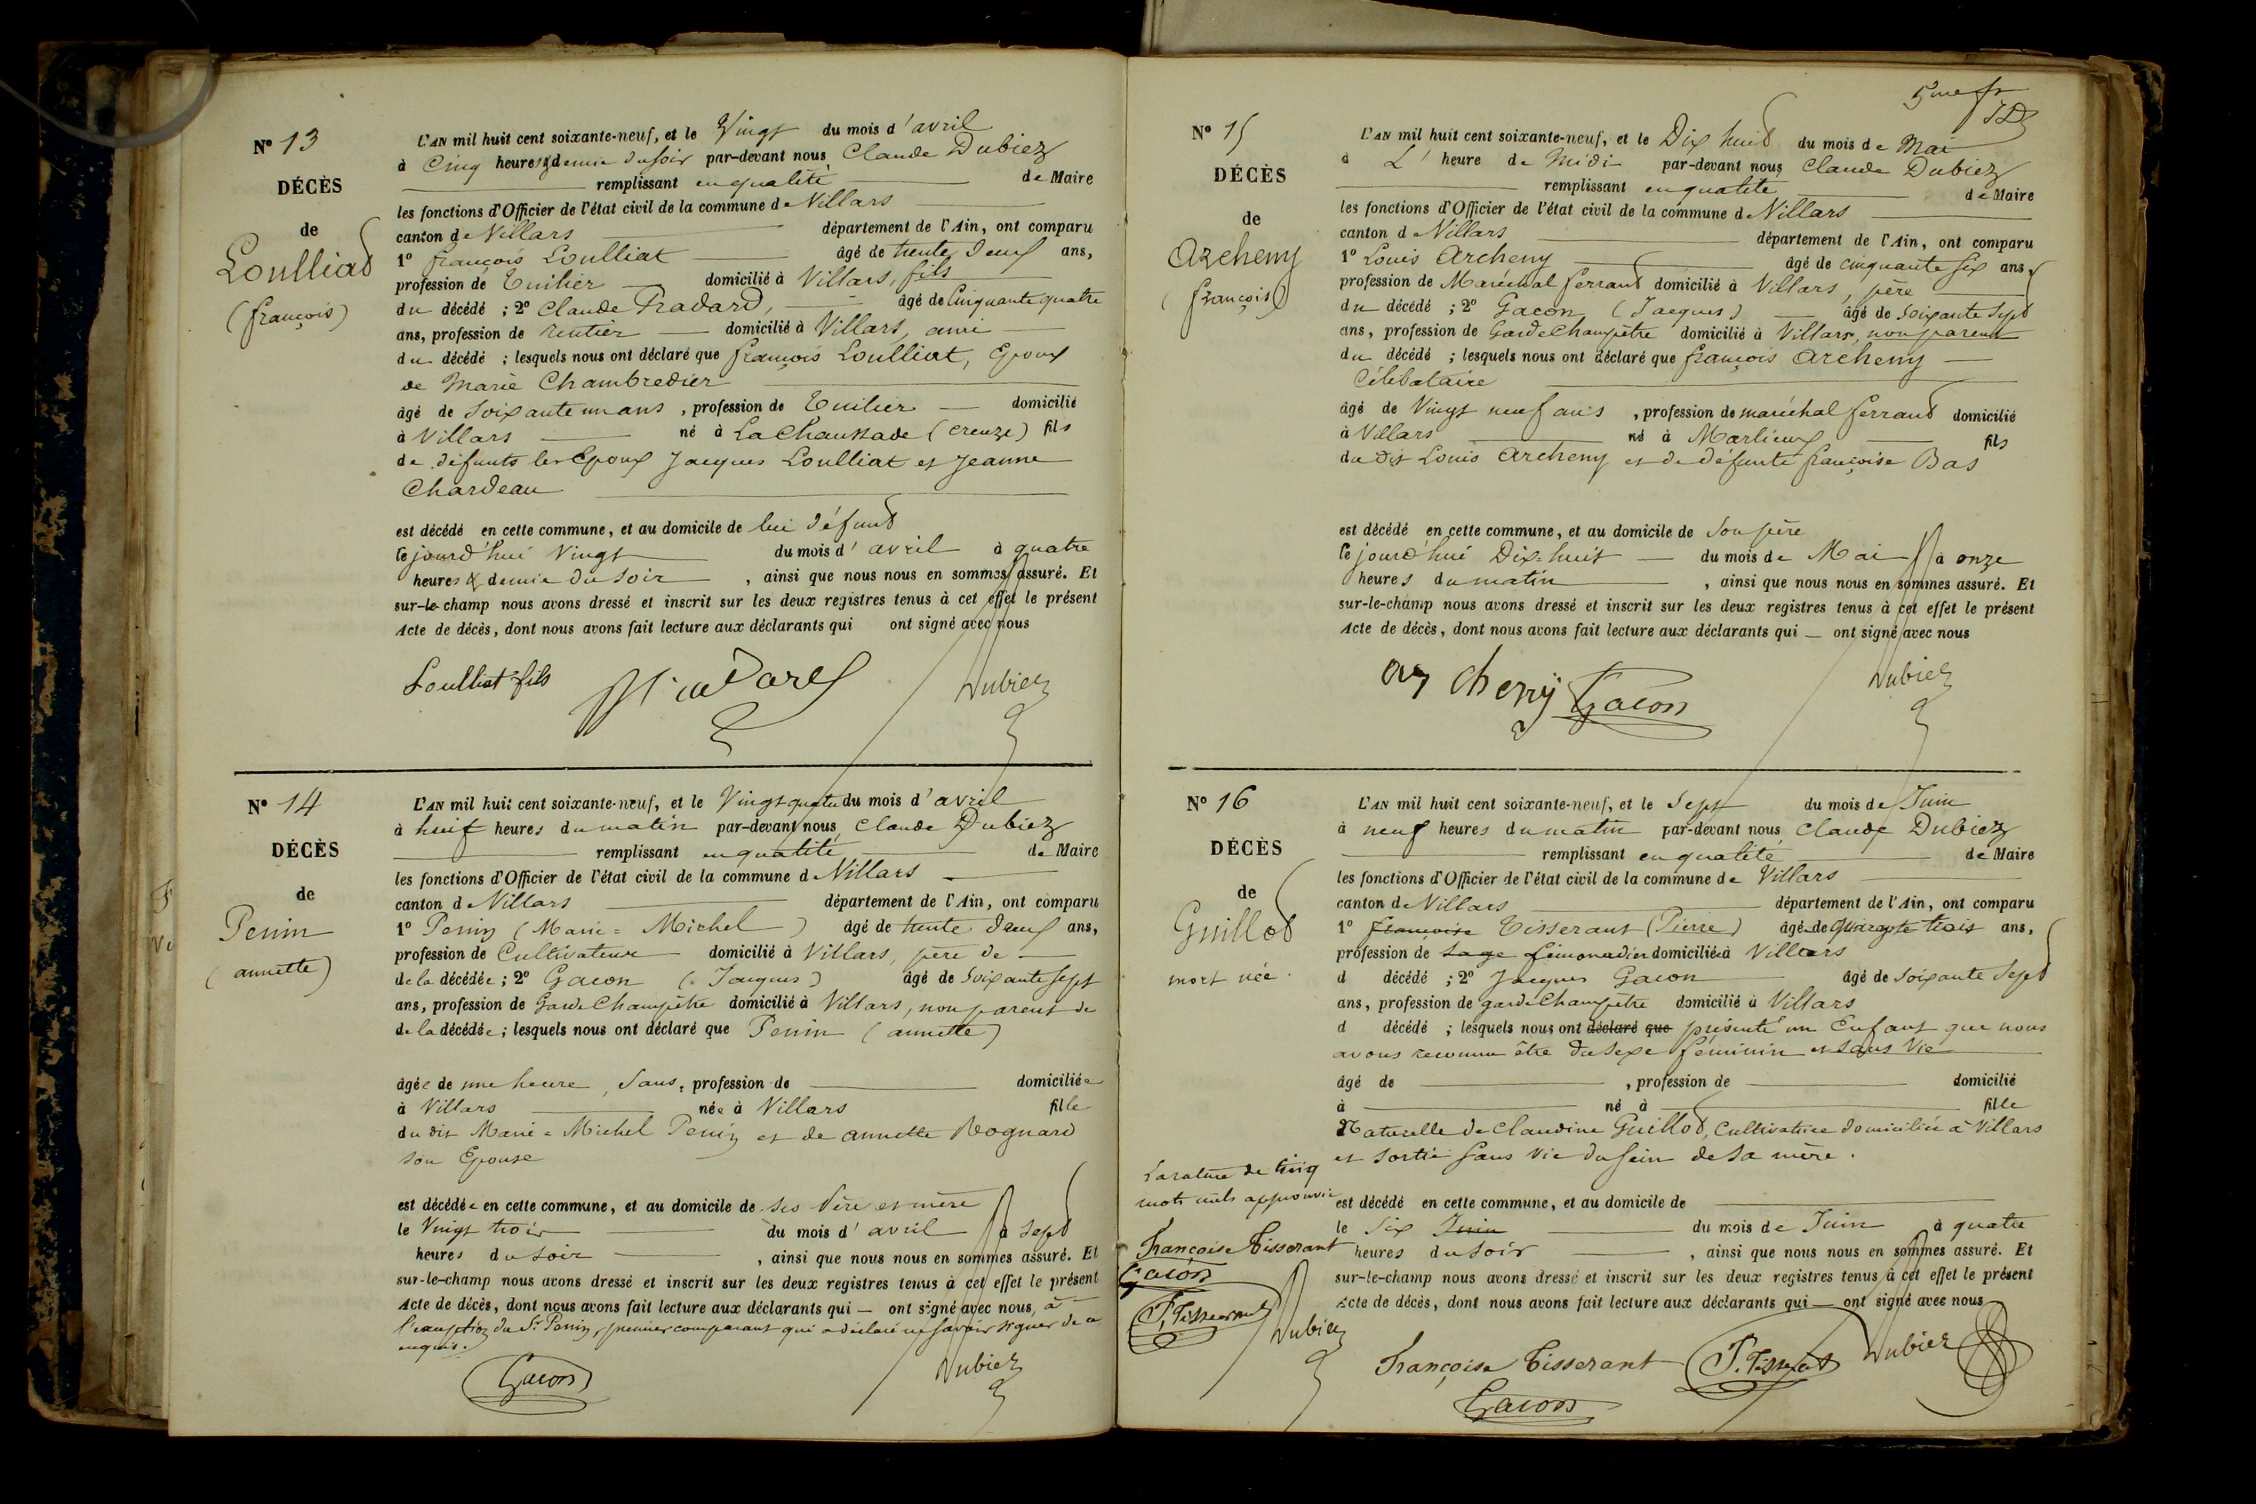 N° 13
DÉCÈS
de
Loulliat
(françois)
L'AN mil huit cent soixante-neuf, et le Vingt du mois d'avril
à Cinq heures & demie du soir par-devant nous, Claude Dubiez
remplissant en qualité de Maire
les fonctions d'Officier de l'état civil de la commune de Villars
canton de Villars département de l'Ain, ont comparu
1° françois Loulliat âgé de trente deux ans,
profession de Tuilier domicilié à Villars, fils
du décédé ; 2° Claude Pradard, âgé de Cinquante quatre
ans, profession de rentier domicilié à Villars, ami
du décédé ; lesquels nous ont déclaré que françois Loulliat, Epoux
de Marie Chambredier
âgé de Soixante un ans, profession de Tuilier domicilié
à Villars né à La Chaussade (Creuze) fils
de défunts les Epoux Jacques Loulliat et Jeanne
Chardeau
est décédé en cette commune, et au domicile de lui défunt
le jourd'hui Vingt du mois d'avril à quatre
heures & demie du soir, ainsi que nous nous en sommes assuré. Et
sur-le-champ nous avons dressé et inscrit sur les deux registres tenus à cet effet le présent
Acte de décès, dont nous avons fait lecture aux déclarants qui ont signé avec nous
Loulliat fils Dubiez
N° 14
DÉCÈS
de
Penin
(annette)
L'AN mil huit cent soixante-neuf, et le Vingt quatre du mois d'avril
à huit heures du matin par-devant nous, Claude Dubiez
remplissant en qualité de Maire
les fonctions d'Officier de l'état civil de la commune de Villars
canton de Villars département de l'Ain, ont comparu
1° Penin (Marie = Michel) âgé de trente deux ans,
profession de Cultivateur domicilié à Villars, père de
de la décédée ; 2° Gacon (Jacques) âgé de Soixante sept
ans, profession de Garde Champêtre domicilié à Villars, non parent de
de la décédée ; lesquels nous ont déclaré que Penin (annette)
âgée de une heure, Sans, profession de domiciliée
à Villars née à Villars fille
du dit Marie = Michel Penin et de annette Rognard
son Epouse
est décédée en cette commune, et au domicile de ses Père et mère
le Vingt trois du mois d'avril à Sept
heures du soir, ainsi que nous nous en sommes assuré. Et
sur-le-champ nous avons dressé et inscrit sur les deux registres tenus à cet effet le présent
Acte de décès, dont nous avons fait lecture aux déclarants qui — ont signé avec nous, à
l'exception du Sr Penin, premier comparant qui a déclaré ne savoir signer de ce
enquis.
Gacon Dubiez
5me
N° 15
DÉCÈS
de
Archeny
(françois)
L'AN mil huit cent soixante-neuf, et le Dix huit du mois de Mai
à L'heure de Midi par-devant nous Claude Dubiez
remplissant en qualité de Maire
les fonctions d'Officier de l'état civil de la commune de Villars
canton de Villars département de l'Ain, ont comparu
1° Louis Archeny âgé de cinquante six ans,
profession de Maréchal ferrant domicilié à Villars, père
du décédé ; 2° Gacon (Jacques) âgé de Soixante Sept
ans, profession de Garde Champêtre domicilié à Villars, non parent
du décédé ; lesquels nous ont déclaré que françois Archeny
Célibataire
âgé de Vingt neuf ans, profession de maréchal ferrant domicilié
à Villars né à Marlieux fils
du dit Louis Archeny et de défunte françoise Bas
est décédé en cette commune, et au domicile de Son père
le jourd'hui Dix-huit du mois de Mai à onze
heures du matin, ainsi que nous nous en sommes assuré. Et
sur-le-champ nous avons dressé et inscrit sur les deux registres tenus à cet effet le présent
Acte de décès, dont nous avons fait lecture aux déclarants qui — ont signé avec nous
archeny Gacon Dubiez
N° 16
DÉCÈS
de
Guillot
mort née.
L'AN mil huit cent soixante-neuf, et le Sept du mois de Juin
à neuf heures du matin par-devant nous Claude Dubiez
remplissant en qualité de Maire
les fonctions d'Officier de l'état civil de la commune de Villars
canton de Villars département de l'Ain, ont comparu
1° françoise Tisserant (Pierre) âgé de Quarante trois ans,
profession de Sage Limonadier domicilié à Villars
d décédé ; 2° Jacques Gacon âgé de Soixante Sept
ans, profession de garde Champêtre domicilié à Villars
d décédé ; lesquels nous ont déclaré que présenté un Enfant que nous
avons reconnu être du sexe féminin et sans Vie
âgé de , profession de domicilié
à né à fille
Naturelle de Claudine Guillot, Cultivatrice domiciliée à Villars
et sortie sans vie du sein de sa mère.
est décédé en cette commune, et au domicile de
le Six Juin du mois de Juin à quatre
heures du soir, ainsi que nous nous en sommes assuré. Et
sur-le-champ nous avons dressé et inscrit sur les deux registres tenus à cet effet le présent
Acte de décès, dont nous avons fait lecture aux déclarants qui — ont signé avec nous
La rature de cinq
mots nuls approuvée
Françoise Tisserant
Gacon
P. Tisserant
Dubiez
Françoise Tisserant P. Tisserant Dubiez
Gacon